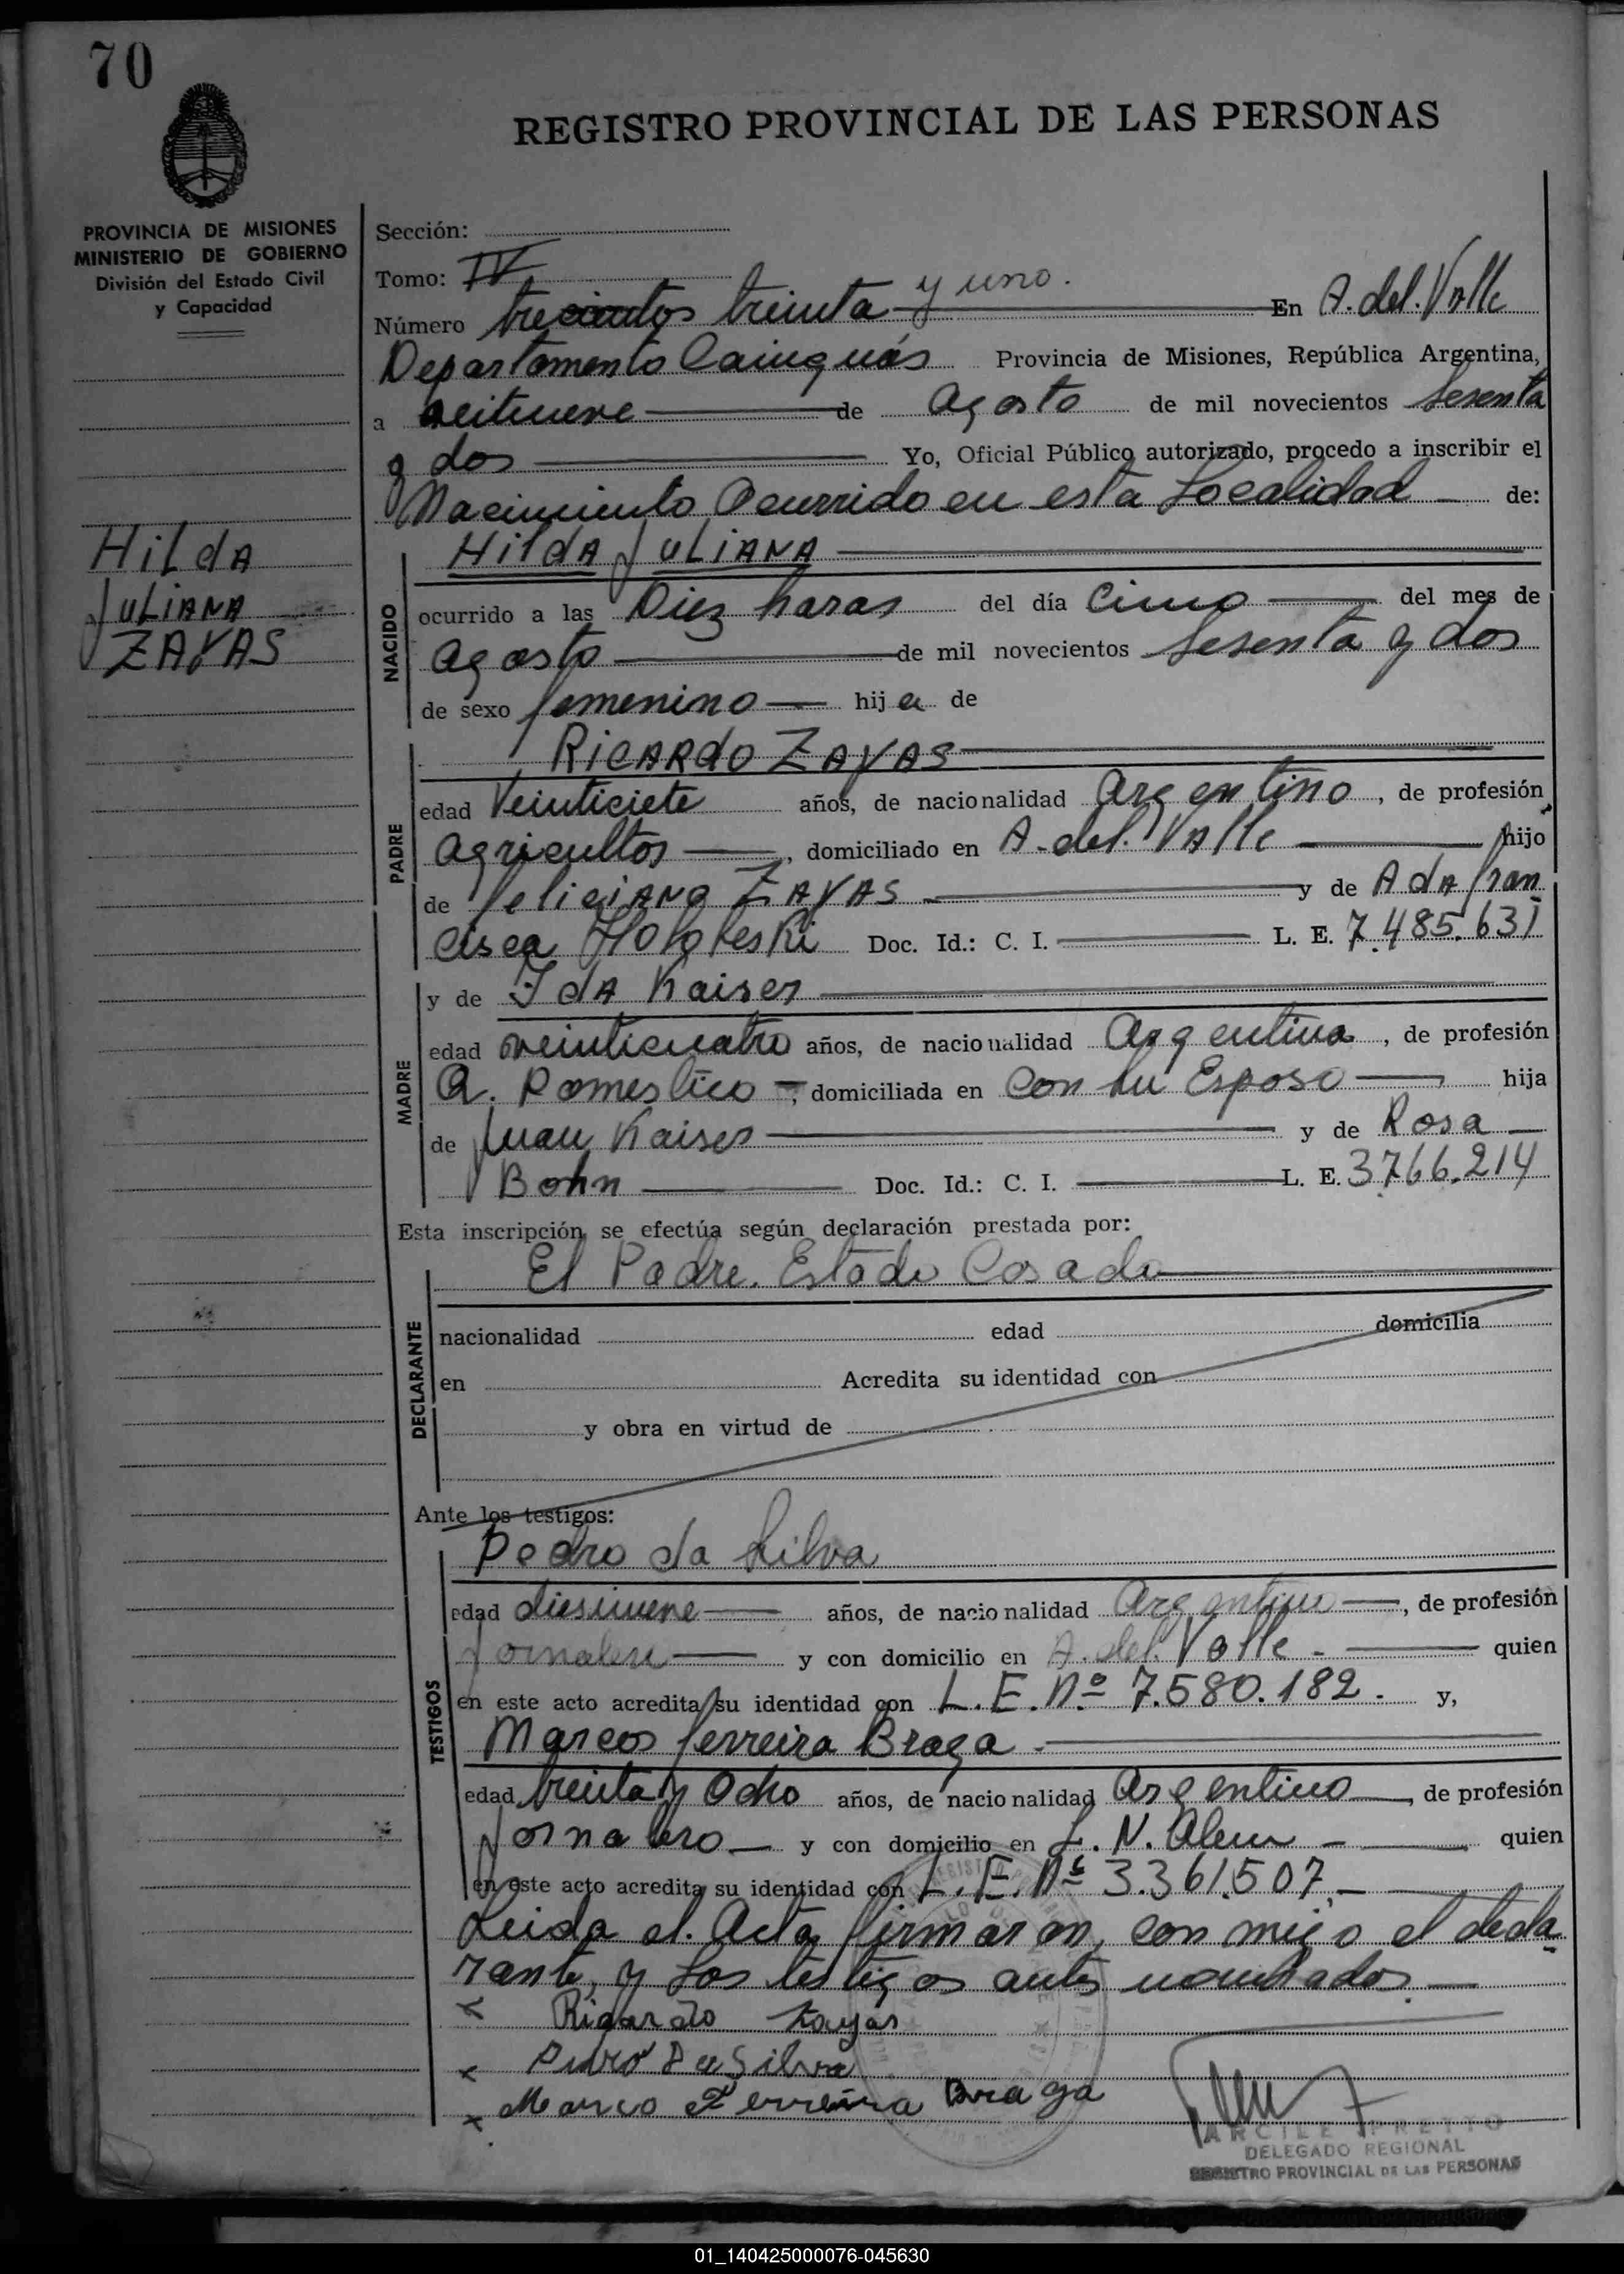 70
REGISTRO PROVINCIAL DE LAS PERSONAS
PROVINCIA DE MISIONES
MINISTERIO DE GOBIERNO
División del Estado Civil
y Capacidad
Hilda
Juliana
ZAYAS
Sección:
Tomo: IV
Número trecientos treinta y uno. En A. del. Valle
Departamento Cainguás Provincia de Misiones, República Argentina,
a veitinueve de Agosto de mil novecientos sesenta
y dos Yo, Oficial Público autorizado, procedo a inscribir el
Nacimiento Ocurrido en esta Localidad de:
NACIDO
Hilda Juliana
ocurrido a las Diez horas del día Cinco del mes de
Agosto de mil novecientos Sesenta y dos
de sexo femenino hija de
PADRE
RICARdo ZAYAS
edad Veinticiete años, de nacionalidad Argentino, de profesión
Agricultor, domiciliado en A. del. Valle hijo
de feliciano ZAYAS y de Ada fran
cisca Doc. Id.: C. I. L. E. 7.485.631
MADRE
y de Ida Kaiser
edad veinticuatro años, de nacionalidad Argentina, de profesión
Q. Domestico, domiciliada en Con su Esposo hija
de Juan Kaiser y de Rosa
Bohn Doc. Id.: C. I. L. E. 3.766.214
Esta inscripción se efectúa según declaración prestada por:
DECLARANTE
El Padre. Estado Casado
nacionalidad edad domicilia
en Acredita su identidad con
y obra en virtud de
Ante los testigos:
TESTIGOS
Pedro da Silva
edad diesinueve años, de nacionalidad Argentino, de profesión
Jornalero y con domicilio en A. del. Valle quien
en este acto acredita su identidad con L. E. Nº 7.580.182. y,
Marcos ferreira Braga
edad treinta y Ocho años, de nacionalidad Argentino, de profesión
Jornalero y con domicilio en L. N. Alem quien
en este acto acredita su identidad con L. E. Nº 3.361.507,
Leida el. Acta firmaron, con migo el decla
rante, y los testigos antes nombrados
x Rigardo Zayas
x Pedro Da Silva
x Marco Ferreira Braga
DELEGADO REGIONAL
REGISTRO PROVINCIAL DE LAS PERSONAS
01_140425000076-045630